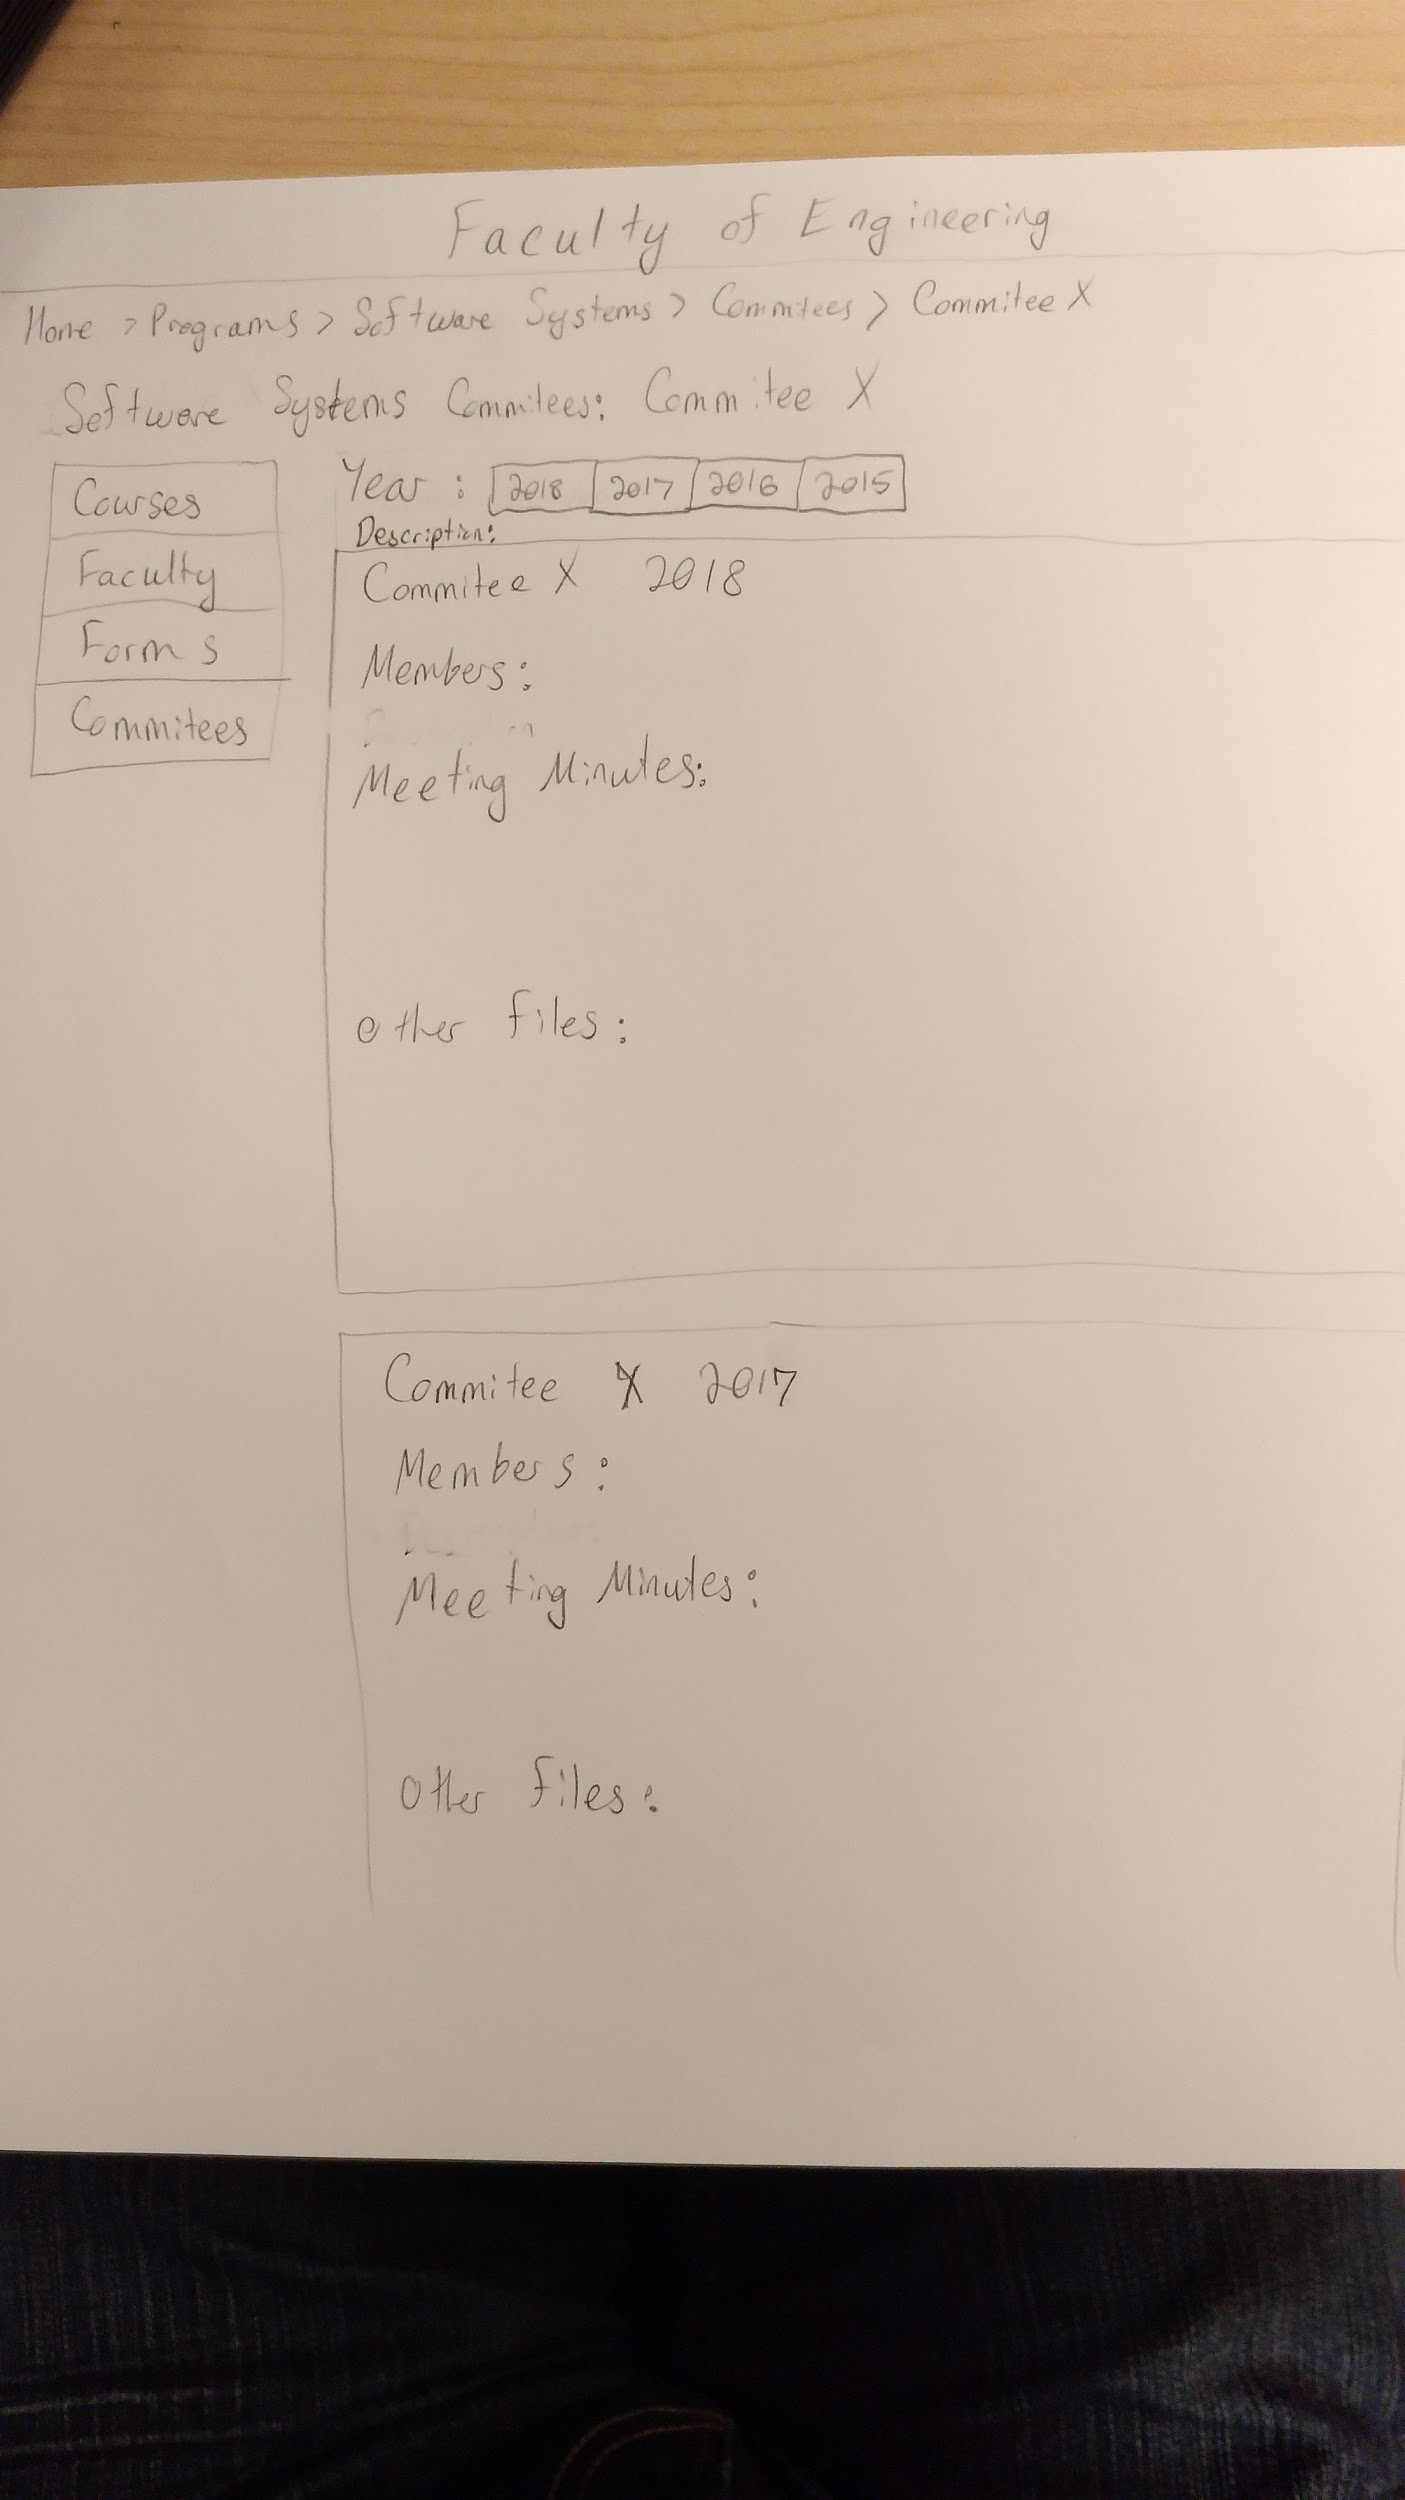 Faculty of Engineering
Home > Programs > Software Systems > Commitees > Commitee X
Software Systems Commitees: Commitee X
Courses
Faculty
Forms
Commitees
Year : 2018 2017 2016 2015
Description:
Commitee X 2018
Members:
Meeting Minutes:
Other Files:
Commitee X 2017
Members:
Meeting Minutes:
Other Files: